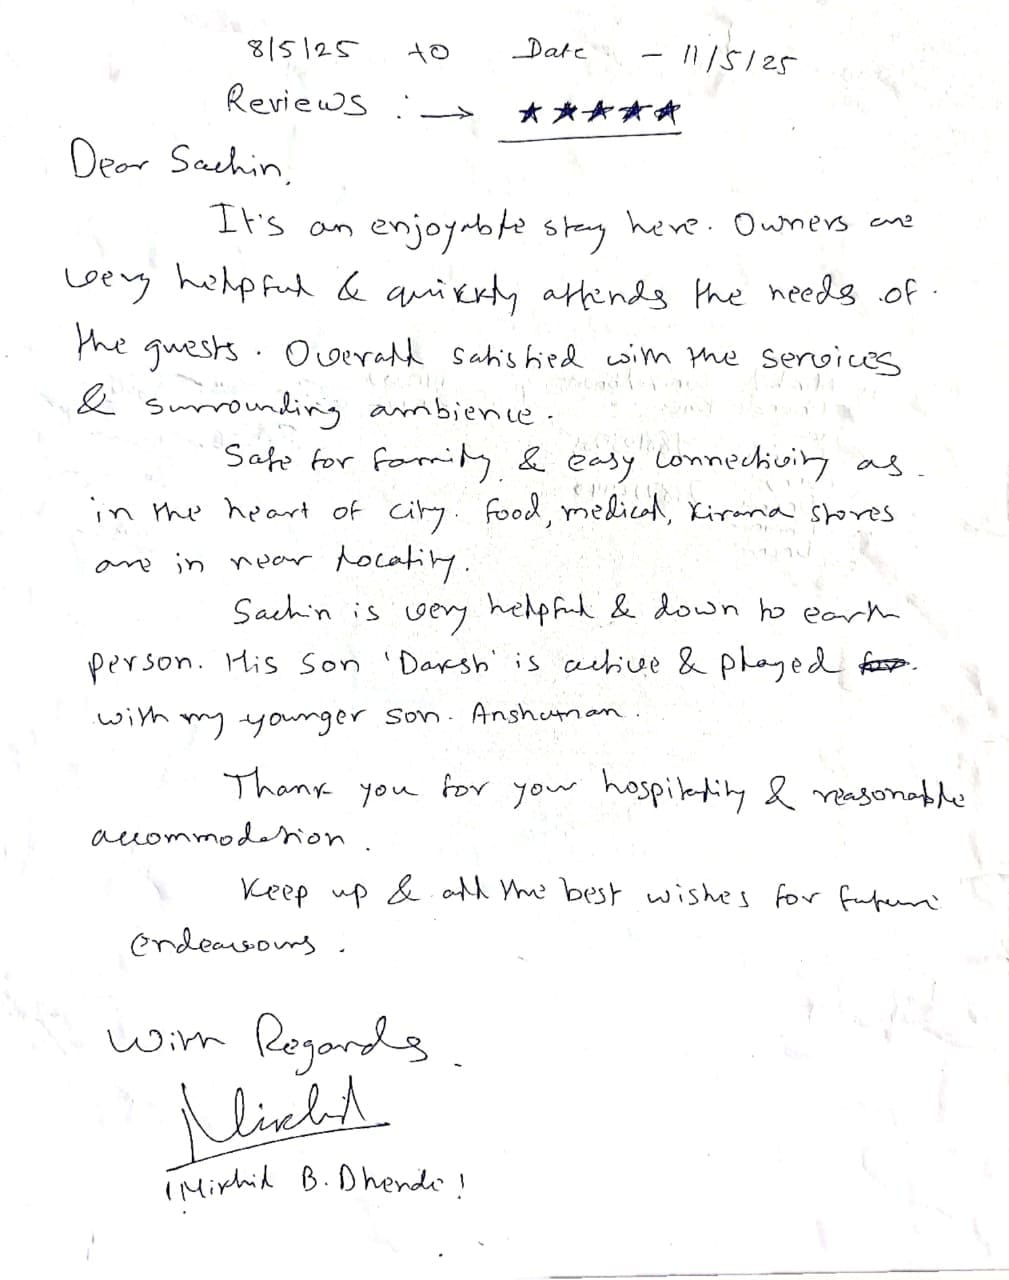 8/5/25 to Date - 11/5/25
Reviews :→ ★★★★★
Dear Sachin,
It's an enjoyable stay here. Owners are
very helpful & quickly attends the needs of
the guests. Overall satisfied with the services
& surrounding ambience.
Safe for family & easy connectivity as
in the heart of city. Food, medical, kirana stores
are in near locality.
Sachin is very helpful & down to earth
person. His son 'Darsh' is active & played for
with my younger son. Anshuman.
Thank you for your hospitality & reasonable
accommodation.
Keep up & all the best wishes for future
endeavours.
With Regards.
B. Dhende